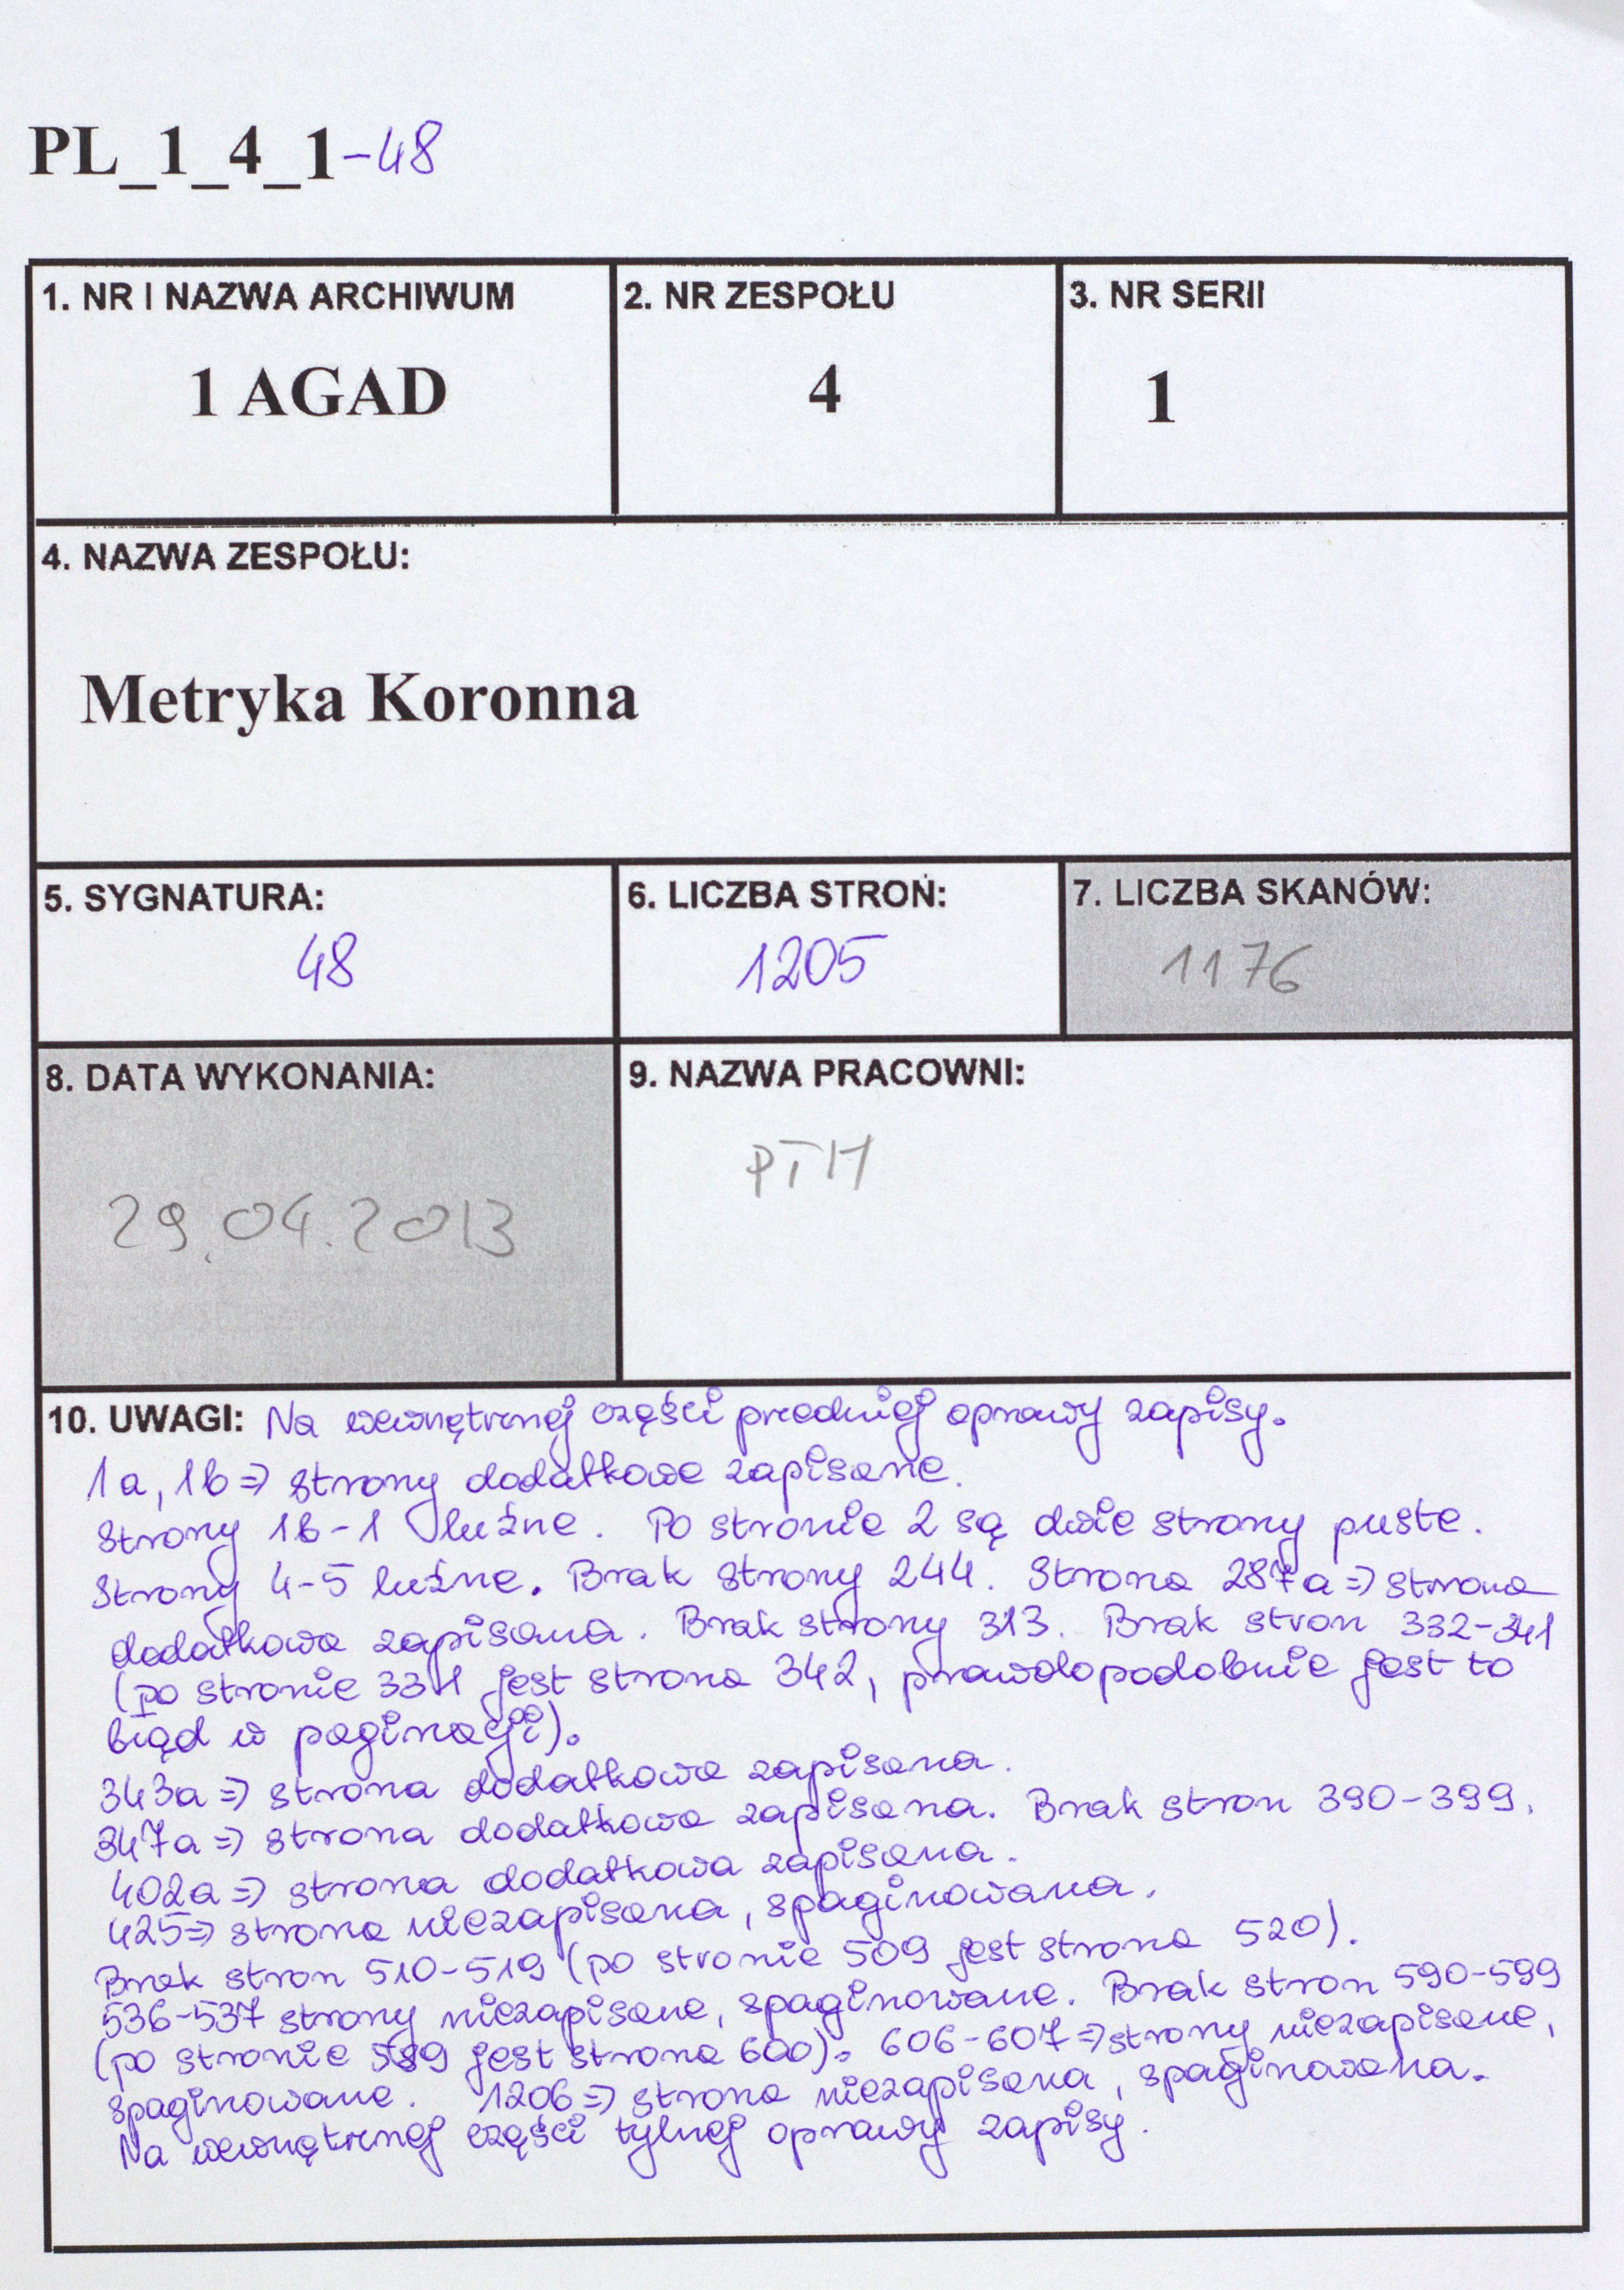 PL_1_4_1-48
1. NR I NAZWA ARCHIWUM
1 AGAD
2. NR ZESPOŁU
4
3. NR SERII
1
4. NAZWA ZESPOŁU:
Metryka Koronna
5. SYGNATURA:
48
6. LICZBA STRON:
1205
7. LICZBA SKANÓW:
1176
8. DATA WYKONANIA:
29.04.2013
9. NAZWA PRACOWNI:
PTH
10. UWAGI: Na wewnętrznej części przedniej oprawy zapisy.
1a, 1b => strony dodatkowe zapisane.
Strony 1b-1 luźne. Po stronie 2 są dwie strony puste.
Strony 4-5 luźne. Brak strony 244. Strona 287a => strona
dodatkowa zapisana. Brak strony 313. Brak stron 332-341
(po stronie 331 jest strona 342, prawdopodobnie jest to
błąd w paginacji).
343a => strona dodatkowa zapisana.
347a => strona dodatkowa zapisana. Brak stron 390-399.
402a => strona dodatkowa zapisana.
425 => strona niezapisana, spaginowana.
Brak stron 510-519 (po stronie 509 jest strona 520).
536-537 strony niezapisane, spaginowane. Brak stron 590-599
(po stronie 589 jest strona 600). 606-607 => strony niezapisane,
spaginowane. 1206 => strona niezapisana, spaginowana.
Na wewnętrznej części tylnej oprawy zapisy.